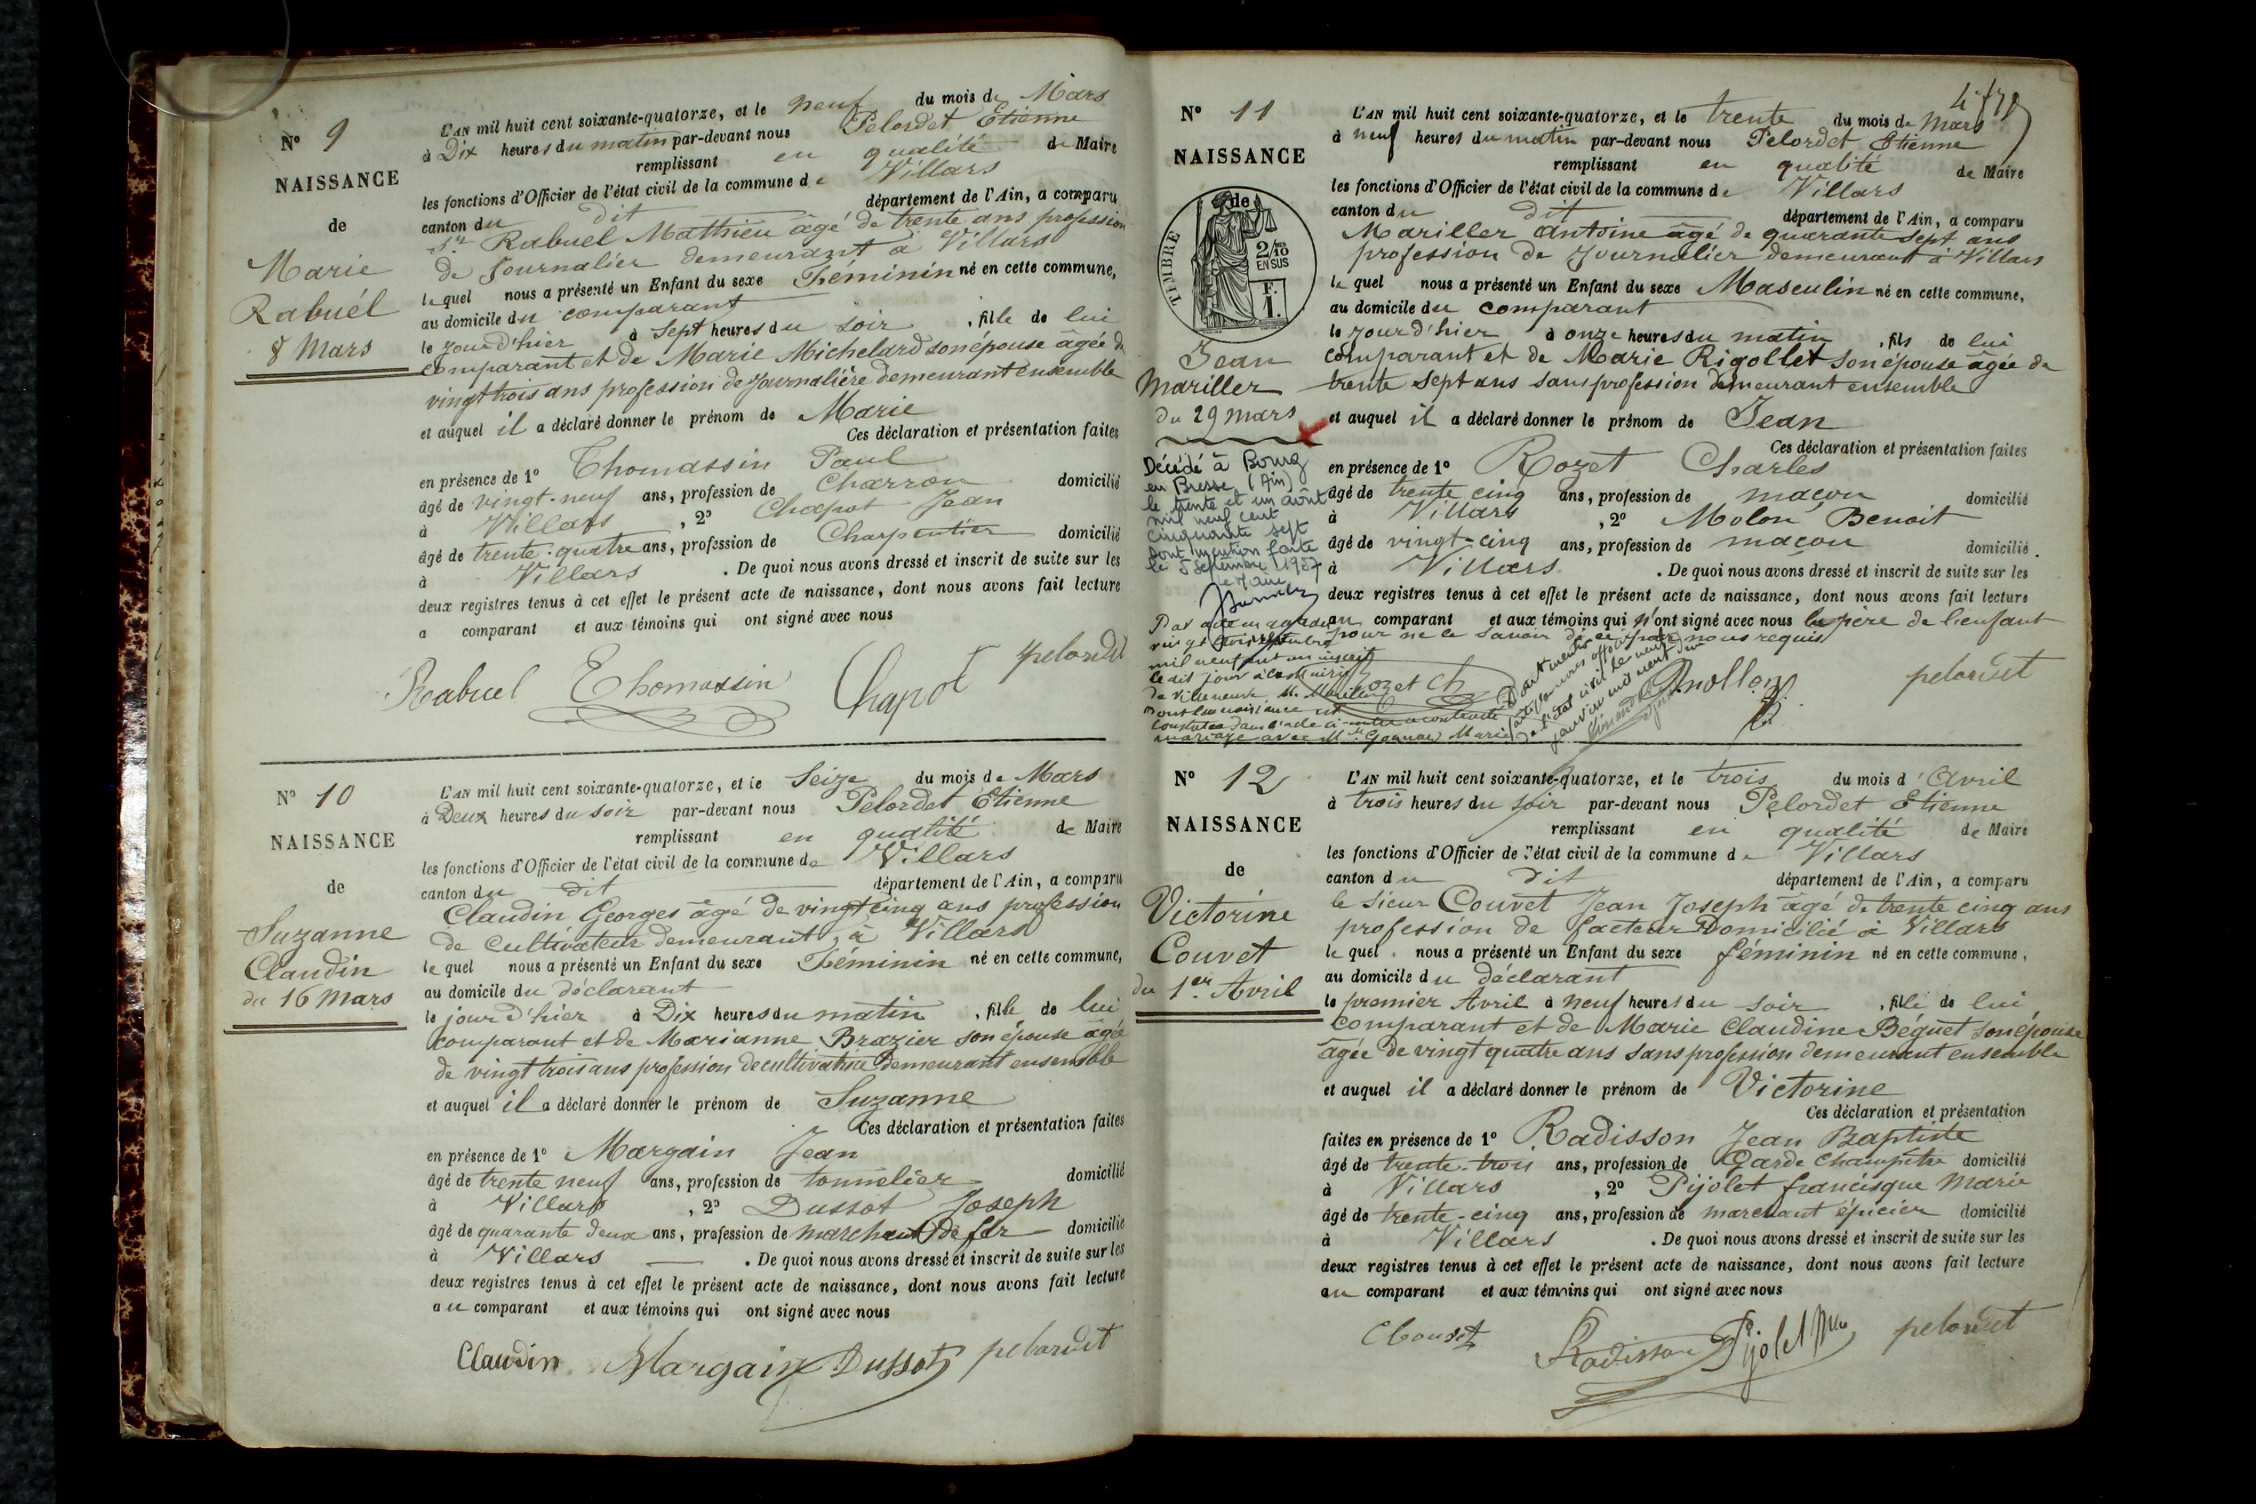 N° 9
NAISSANCE
de
Marie
Rabuél
8 Mars
L'AN mil huit cent soixante-quatorze, et le neuf du mois de Mars
à Dix heures du matin par-devant nous Pelordet Etienne
remplissant en qualité de Maire
les fonctions d'Officier de l'état civil de la commune de Villars
canton du dit département de l'Ain, a comparu
Sr Rabuel Mathieu âgé de trente ans profession
de Journalier demeurant à Villars
lequel nous a présenté un Enfant du sexe Féminin né en cette commune,
au domicile du comparant
le jour d'hier à Sept heures du soir, fille de lui
comparant et de Marie Michelard son épouse âgée de
vingt trois ans profession de Journalière demeurant ensemble
et auquel il a déclaré donner le prénom de Marie
Ces déclaration et présentation faites
en présence de 1° Thomassin Paul
âgé de vingt-neuf ans, profession de Charron domicilié
à Villars, 2° Chapot Jean
âgé de trente-quatre ans, profession de Charpentier domicilié
à Villars. De quoi nous avons dressé et inscrit de suite sur les
deux registres tenus à cet effet le présent acte de naissance, dont nous avons fait lecture
a comparant et aux témoins qui ont signé avec nous
Rabuel Thomassin Chapot pelordet
N° 10
NAISSANCE
de
Suzanne
Claudin
du 16 Mars
L'AN mil huit cent soixante-quatorze, et le Seize du mois de Mars
à Deux heures du soir par-devant nous Pelordet Etienne
remplissant en qualité de Maire
les fonctions d'Officier de l'état civil de la commune de Villars
canton du dit département de l'Ain, a comparu
Claudin Georges âgé de vingt cinq ans profession
de Cultivateur demeurant à Villars
lequel nous a présenté un Enfant du sexe Féminin né en cette commune,
au domicile du déclarant
le jour d'hier à Dix heures du matin, fille de lui
comparant et de Marianne Brazier son épouse âgée
de vingt trois ans profession de cultivatrice demeurant ensemble
et auquel il a déclaré donner le prénom de Suzanne
Ces déclaration et présentation faites
en présence de 1° Margain Jean
âgé de trente neuf ans, profession de tonnelier domicilié
à Villars, 2° Dussot Joseph
âgé de quarante deux ans, profession de marchant de fer domicilié
à Villars. De quoi nous avons dressé et inscrit de suite sur les
deux registres tenus à cet effet le présent acte de naissance, dont nous avons fait lecture
au comparant et aux témoins qui ont signé avec nous
Claudin Margain Dussot pelordet
N° 11
NAISSANCE
de
TIMBRE
2/10
EN SUS
F.
1.
Jean
Mariller
du 29 mars
Décédé à Bourg
en Bresse (Ain)
le trente et un août
mil neuf cent
cinquante sept
Dont mention faite
le 5 Septembre 1957
Le Maire
L'AN mil huit cent soixante-quatorze, et le trente du mois de Mars
à neuf heures du matin par-devant nous Pelordet Etienne
remplissant en qualité de Maire
les fonctions d'Officier de l'état civil de la commune de Villars
canton du dit département de l'Ain, a comparu
Mariller Antoine âgé de quarante sept ans
profession de Journalier demeurant à Villars
lequel nous a présenté un Enfant du sexe Masculin né en cette commune,
au domicile du comparant
le jour d'hier à onze heures du matin, fils de lui
comparant et de Marie Rigollet son épouse âgée de
trente sept ans sans profession demeurant ensemble
et auquel il a déclaré donner le prénom de Jean
Ces déclaration et présentation faites
en présence de 1° Rozet Charles
âgé de trente cinq ans, profession de maçon domicilié
à Villars, 2° Molon Benoit
âgé de vingt-cinq ans, profession de maçon domicilié
à Villars. De quoi nous avons dressé et inscrit de suite sur les
deux registres tenus à cet effet le présent acte de naissance, dont nous avons fait lecture
au comparant et aux témoins qui n'ont signé avec nous le père de l'enfant
pour ne le savoir de ce par nous requis
Par acte en date du
vingt trois
mil neuf cent un inscrit
le dit jour à la Mairie
de Villeneuve M. Mariller
dont la naissance est
constatée dans l'acte ci-contre a contracté
mariage avec Mlle Marie
Dont mention
faite par nous officier
de l'état civil le neuf
mil neuf
Rozet Ch pelordet
N° 12
NAISSANCE
de
Victorine
Couvet
du 1er Avril
L'AN mil huit cent soixante-quatorze, et le trois du mois d'Avril
à trois heures du soir par-devant nous Pelordet Etienne
remplissant en qualité de Maire
les fonctions d'Officier de l'état civil de la commune de Villars
canton du dit département de l'Ain, a comparu
le Sieur Couvet Jean Joseph âgé de trente cinq ans
profession de facteur Domicilié à Villars
lequel nous a présenté un Enfant du sexe féminin né en cette commune,
au domicile du déclarant
le premier Avril à neuf heures du soir, fille de lui
comparant et de Marie Claudine Béguet son épouse
âgée de vingt quatre ans sans profession demeurant ensemble
et auquel il a déclaré donner le prénom de Victorine
Ces déclaration et présentation
faites en présence de 1° Radisson Jean Baptiste
âgé de trente-trois ans, profession de Garde Champêtre domicilié
à Villars, 2° Pijolet francisque Marie
âgé de trente-cinq ans, profession de marchant épicier domicilié
à Villars. De quoi nous avons dressé et inscrit de suite sur les
deux registres tenus à cet effet le présent acte de naissance, dont nous avons fait lecture
au comparant et aux témoins qui ont signé avec nous
Radisson Pijolet pelordet